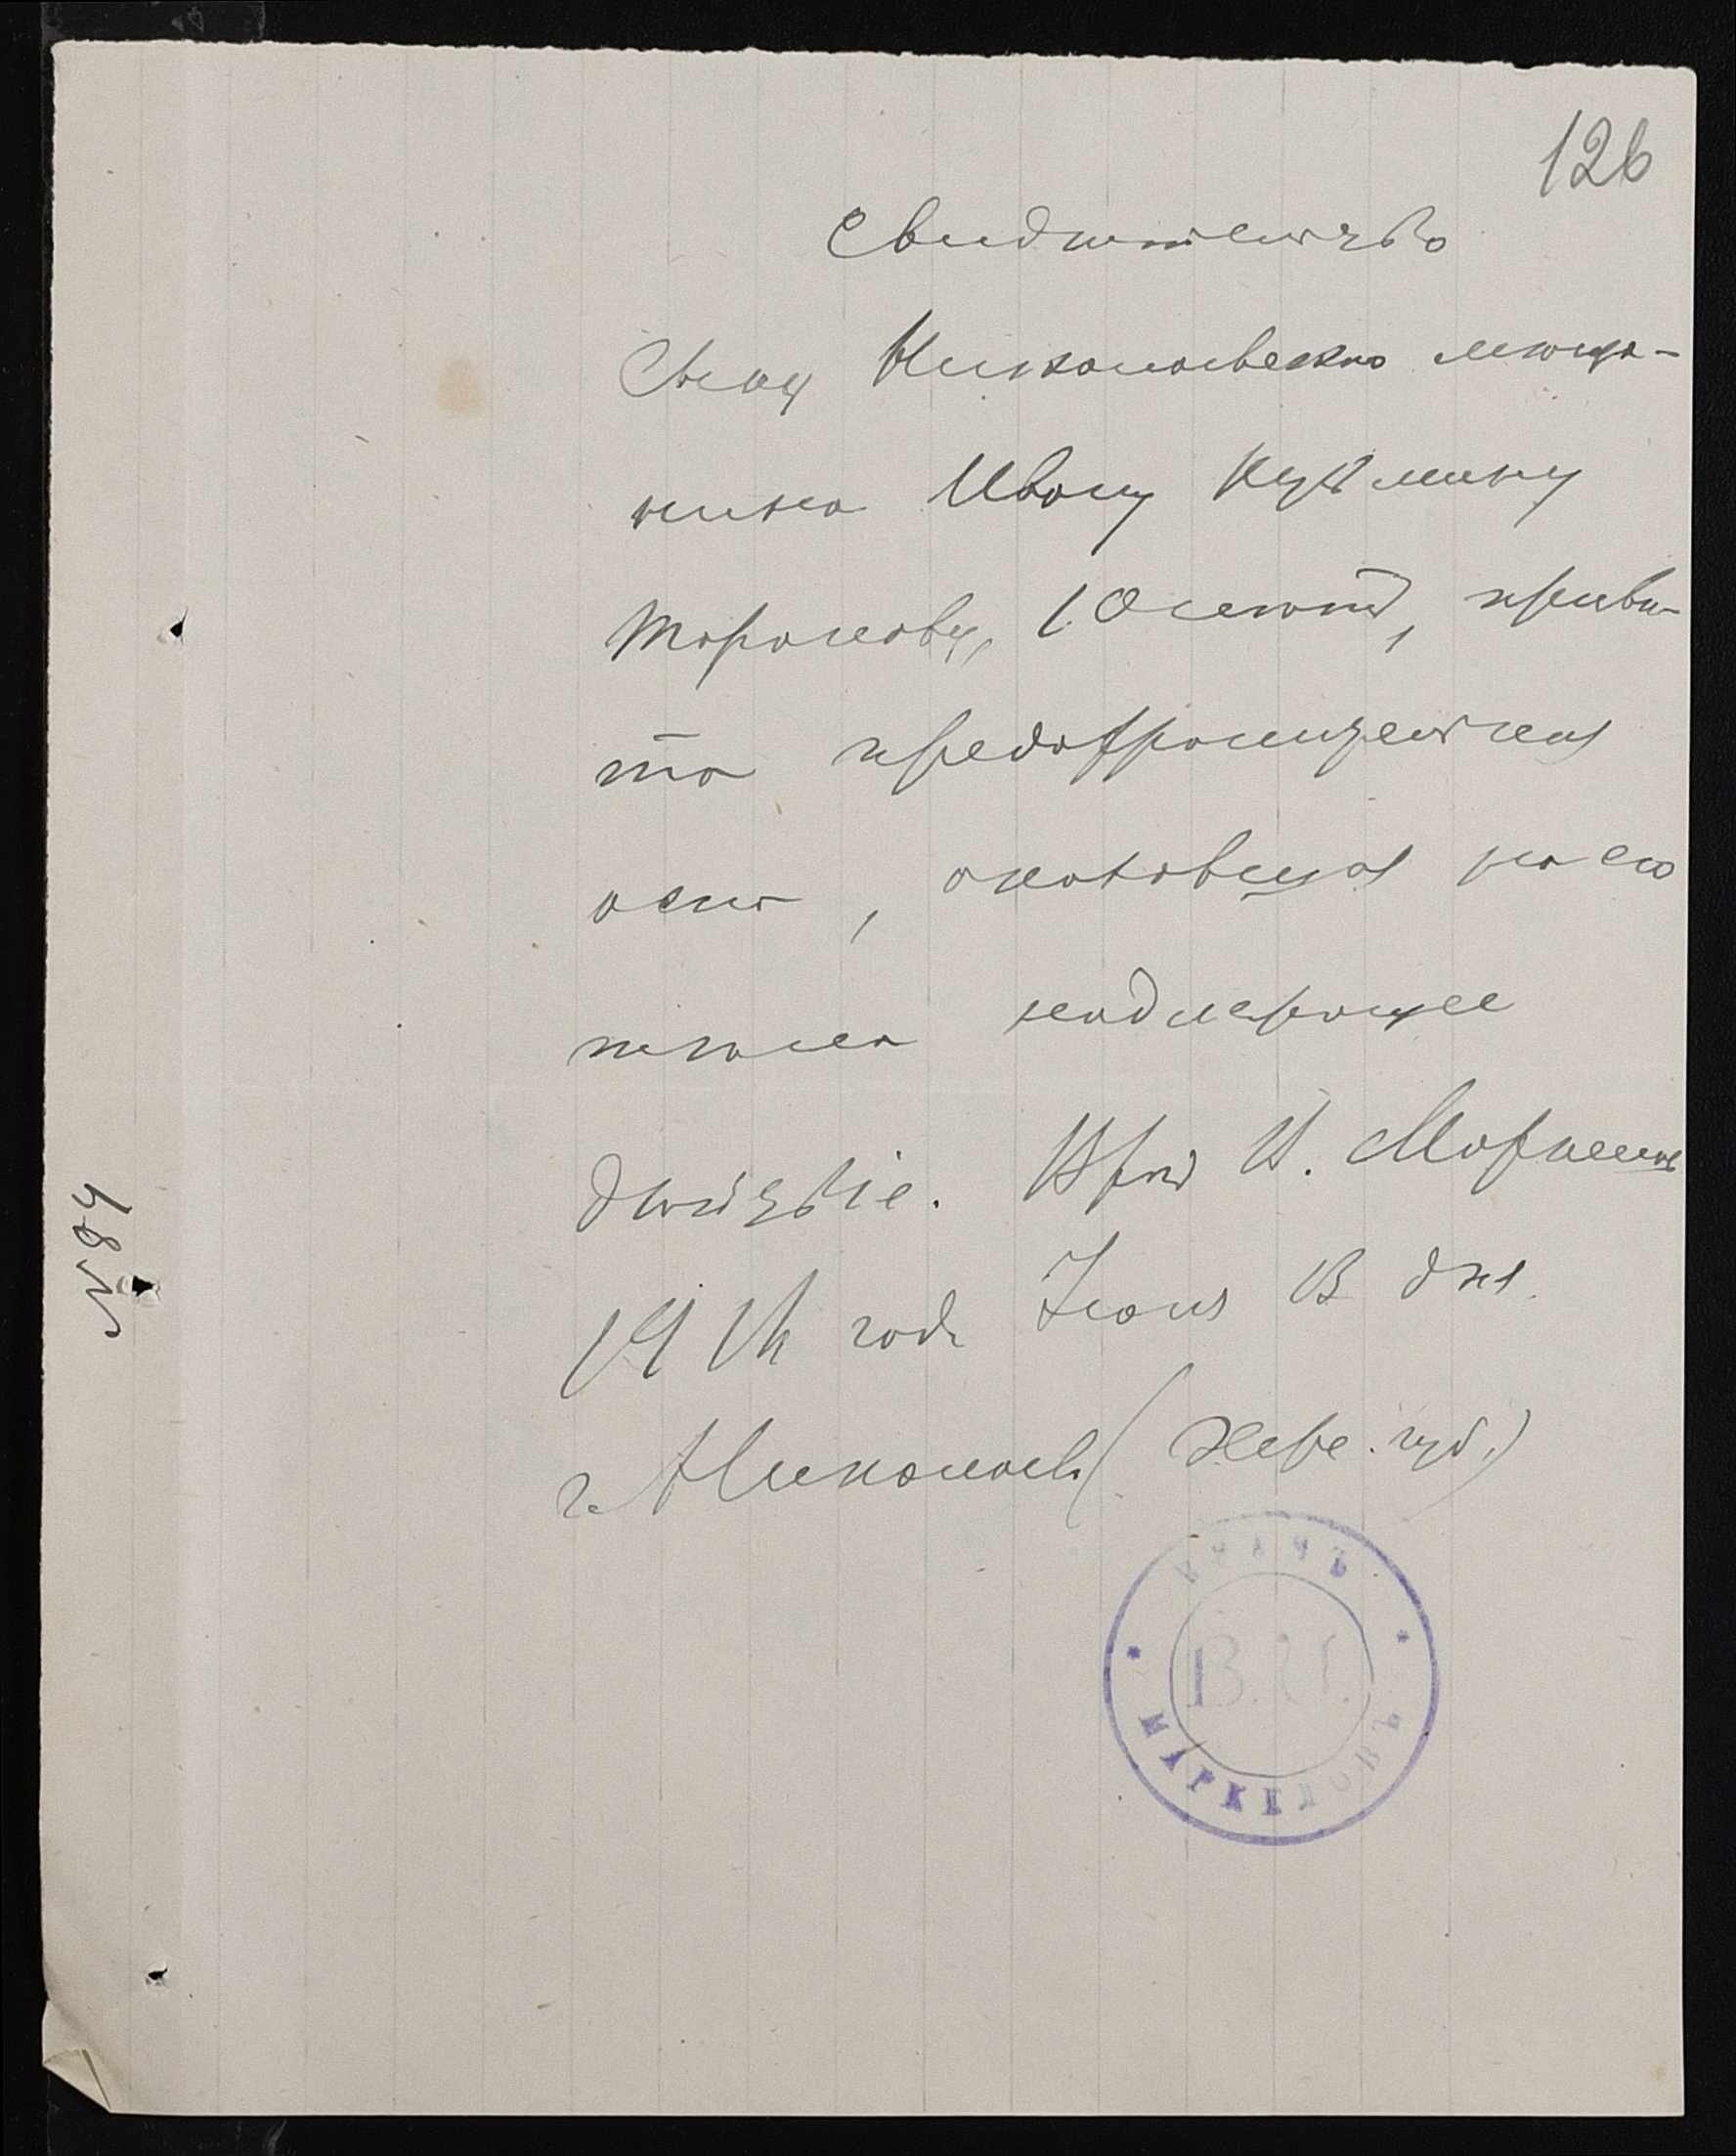 126
Свидѣтельство
Сыну Николаевскаго мѣща-
нина Ивану Кузьмину
10 лѣтъ, приви-
та предохранительная
оспа, оказавшая на его
тѣло надлежащее
дѣйствіе. Врачъ В. Маркеловъ
года Іюня 13 дня.
г. Николаевъ (Херс. губ.)
ВРАЧЪ
В. И.
МАРКЕЛОВЪ
№ 84